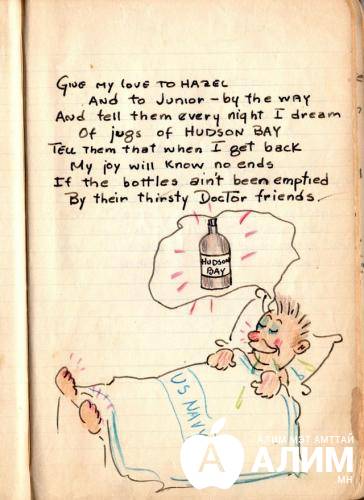 GIVE MY LOVE TO HAZEL
AND TO JUNIOR - by the WAY
AND tell them eveRy night I dReam
OF jugs of HUDSON BAY
TELL THEM that when I get back
My joy will KNOW no ends
IF the bottles ain't been emptied
By theiR thiRsty DocToR fRiends.
HUDSON
BAY
US NAVY
АЛИМ МЭТ АМТТАЙ
АЛИМ
.МН